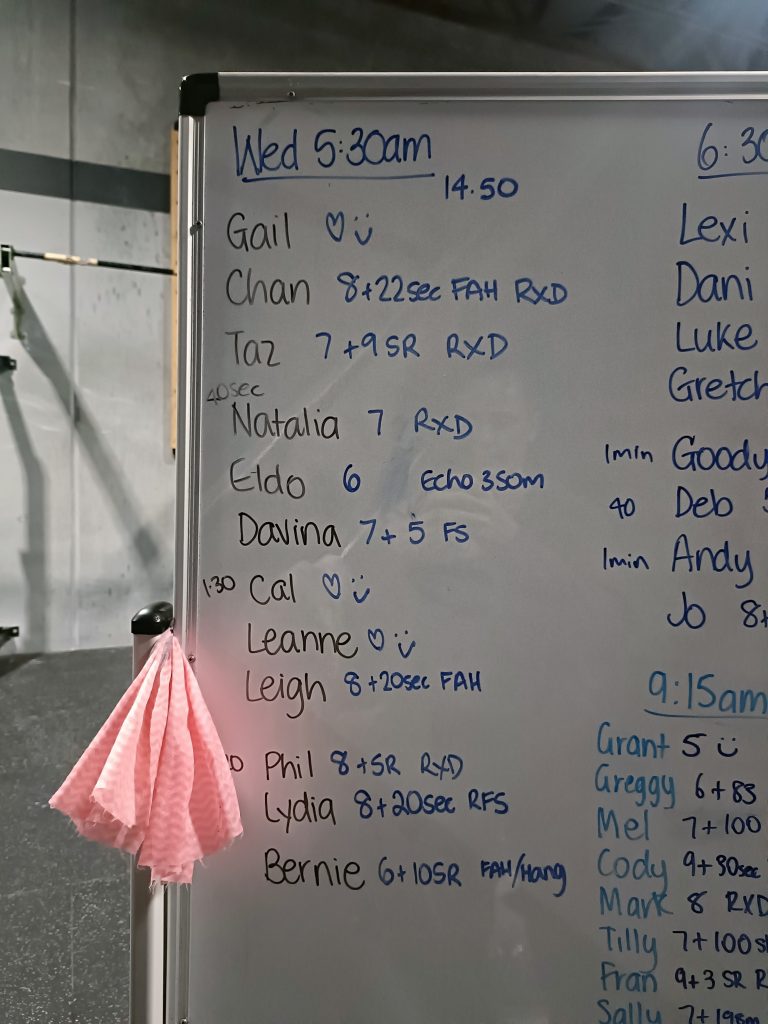 Wed 5:30am
14.50
Gail ♡ ü
Chan 8+22sec FAH RXD
Taz 7+9SR RXD
40sec
Natalia 7 RXD
Eldo 6 Echo 350m
Davina 7+5 FS
1:30 Cal ♡ ü
Leanne ♡ ü
Leigh 8+20sec FAH
Phil 8+5R RXD
Lydia 8+20sec RFS
Bernie 6+10SR FAH/Hang
6:30
Lexi
Dani
Luke
Gretch
1min Goody
40 Deb
1min Andy
Jo 8+
9:15am
Grant 5 ü
Greggy 6+8S
Mel 7+100
Cody 9+30sec
Mark 8 RXD
Tilly 7+100
Fran 9+3 SR R
Sally 7+